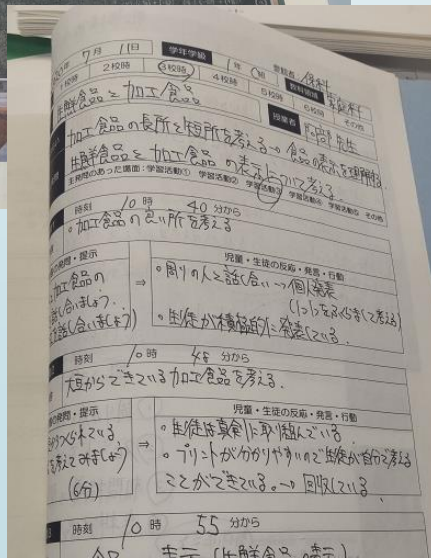 年 7月 11日 学年学級 年 C組
1校時 2校時 3校時 4校時 5校時 6校時 その他
教科領域 家庭科
生鮮食品と加工食品
授業者 先生
加工食品の長所と短所を考える→食品の表示を理解する
生鮮食品と加工食品の表示について考える
主発問のあった場面：学習活動① 学習活動② 学習活動③ 学習活動④ 学習活動⑤ その他
時刻 10時 40分から
・加工食品の良い所を考える
の発問・提示
児童・生徒の反応・発言・行動
加工食品の
話し合いましょう.
を話し合いましょう)
⇒
・周りの人と話し合い→個別発表
(1つ1つをふくらまして考える)
・生徒が積極的に発表している.
時刻 10時 45分から
大豆からできている加工食品を考える.
の発問・提示
児童・生徒の反応・発言・行動
からつくられている
を考えてみましょう
(6分)
⇒
・生徒は真剣に取り組んでいる.
・プリントが分かりやすいので生徒が自分で考える
ことができている.→回収している.
時刻 10時 55分から